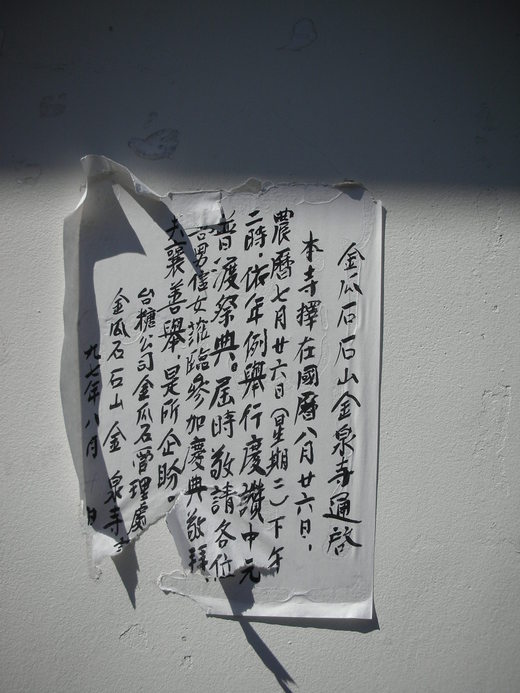 金瓜石石山金泉寺通啓
本寺擇在國曆八月廿六日,
農曆七月廿六日(星期二)下午
二時,依年例舉行慶讚中元
普渡祭典。屆時敬請各位
善男信女蒞臨參加慶典敬拜,
共襄善舉,是所企盼。
台糖公司金瓜石管理處
金瓜石石山金泉寺
九七年八月 日